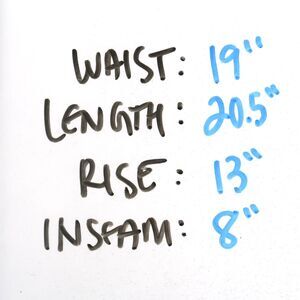 WAIST: 19"
LENGTH: 20.5"
RISE: 13"
INSEAM: 8"